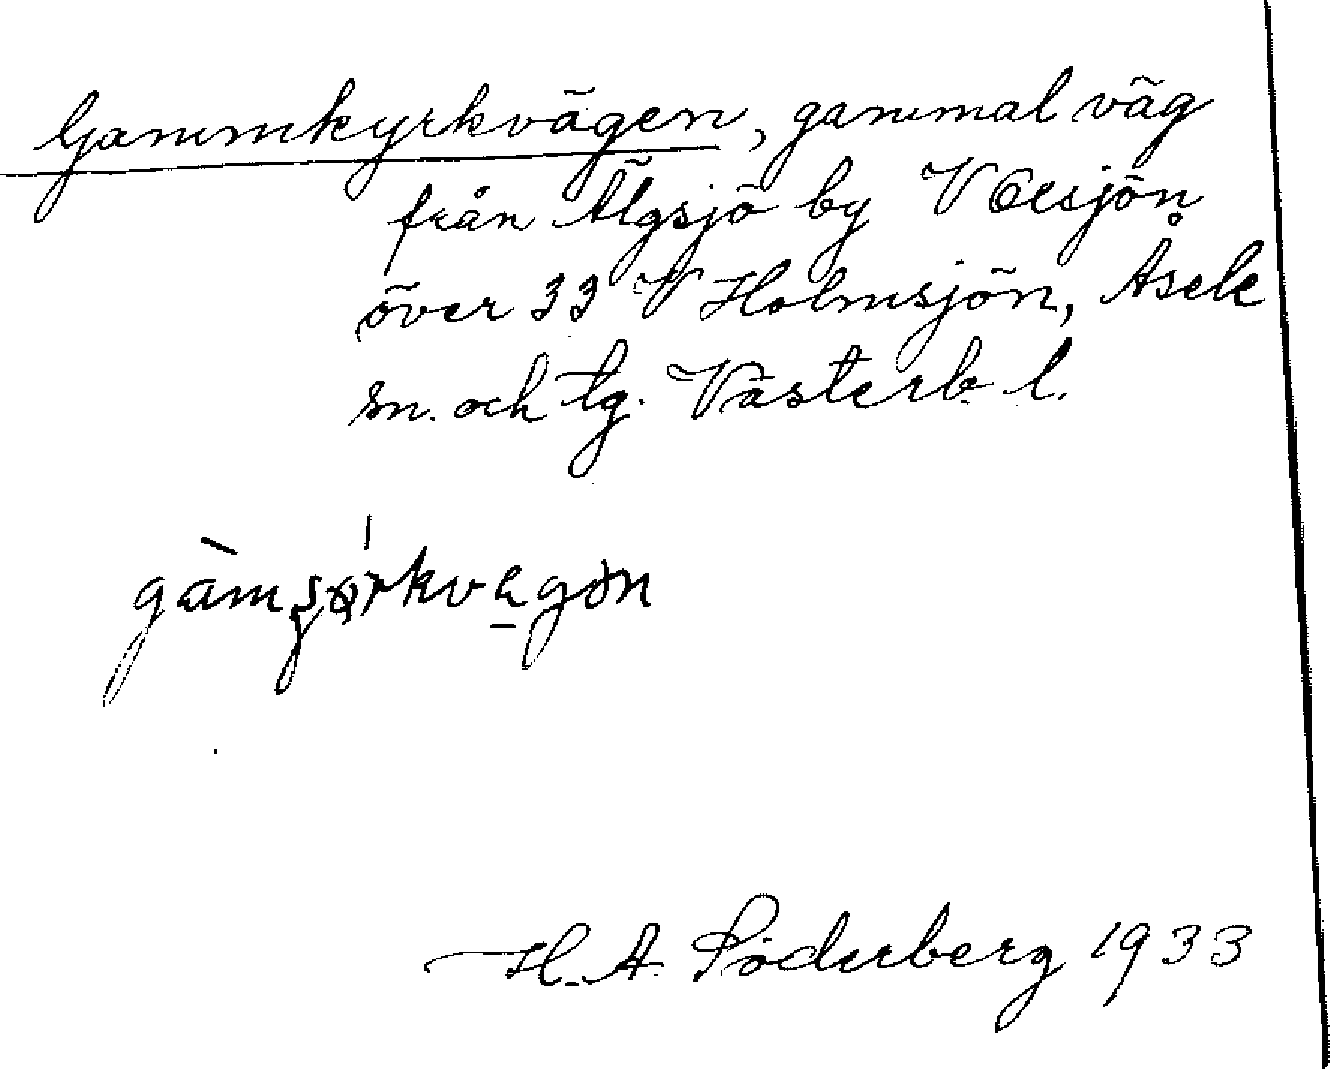 Gammkyrkvägen, gammal väg
från Älgsjö by V Oxsjön
över 33 V Holmsjön, Åsele
sn. och tg. Västerb. l.
H. A. Söderberg 1933